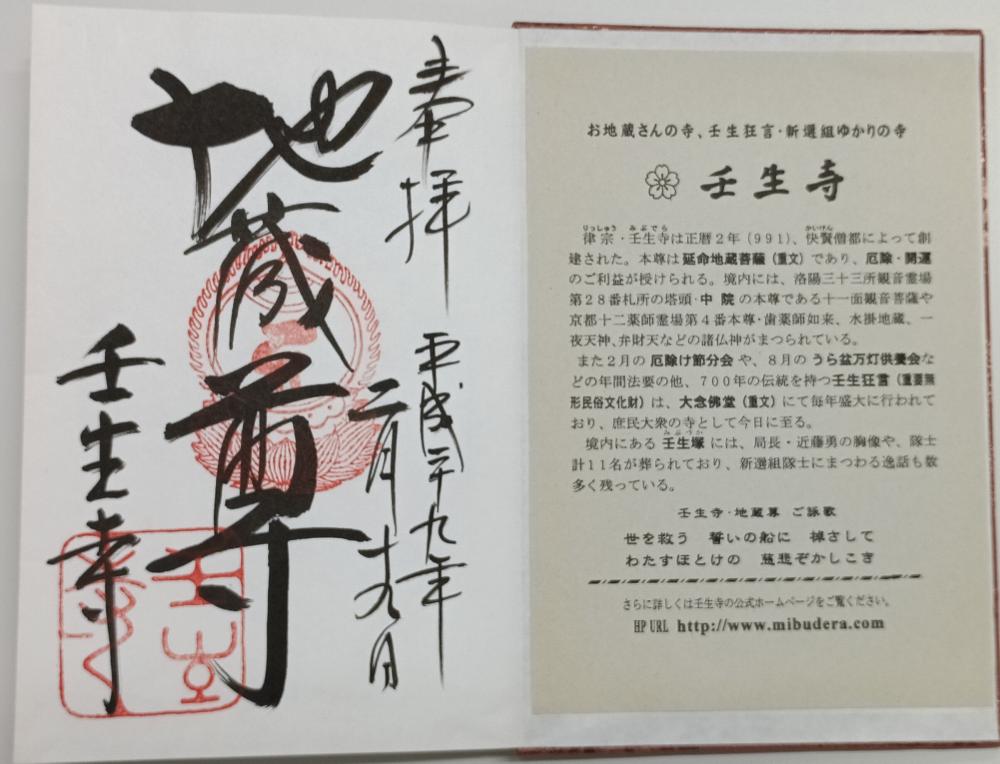 奉拝
平成二十九年
二月十九日
地蔵尊
壬生寺
お地蔵さんの寺、壬生狂言・新選組ゆかりの寺
壬生寺
りっしゅう みぶでら かいけん
律宗・壬生寺は正暦2年(991)、快賢僧都によって創
建された。本尊は延命地蔵菩薩(重文)であり、厄除・開運
のご利益が授けられる。境内には、洛陽三十三所観音霊場
第28番札所の塔頭・中院の本尊である十一面観音菩薩や
京都十二薬師霊場第4番本尊・歯薬師如来、水掛地蔵、一
夜天神、弁財天などの諸仏神がまつられている。
また2月の厄除け節分会や、8月のうら盆万灯供養会な
どの年間法要の他、700年の伝統を持つ壬生狂言(重要無
形民俗文化財)は、大念佛堂(重文)にて毎年盛大に行われて
おり、庶民大衆の寺として今日に至る。
みぶづか
境内にある壬生塚には、局長・近藤勇の胸像や、隊士
計11名が葬られており、新選組隊士にまつわる逸話も数
多く残っている。
壬生寺・地蔵尊 ご詠歌
世を救う 誓いの船に 棹さして
わたすほとけの 慈悲ぞかしこき
さらに詳しくは壬生寺の公式ホームページをご覧ください。
HP URL http://www.mibudera.com